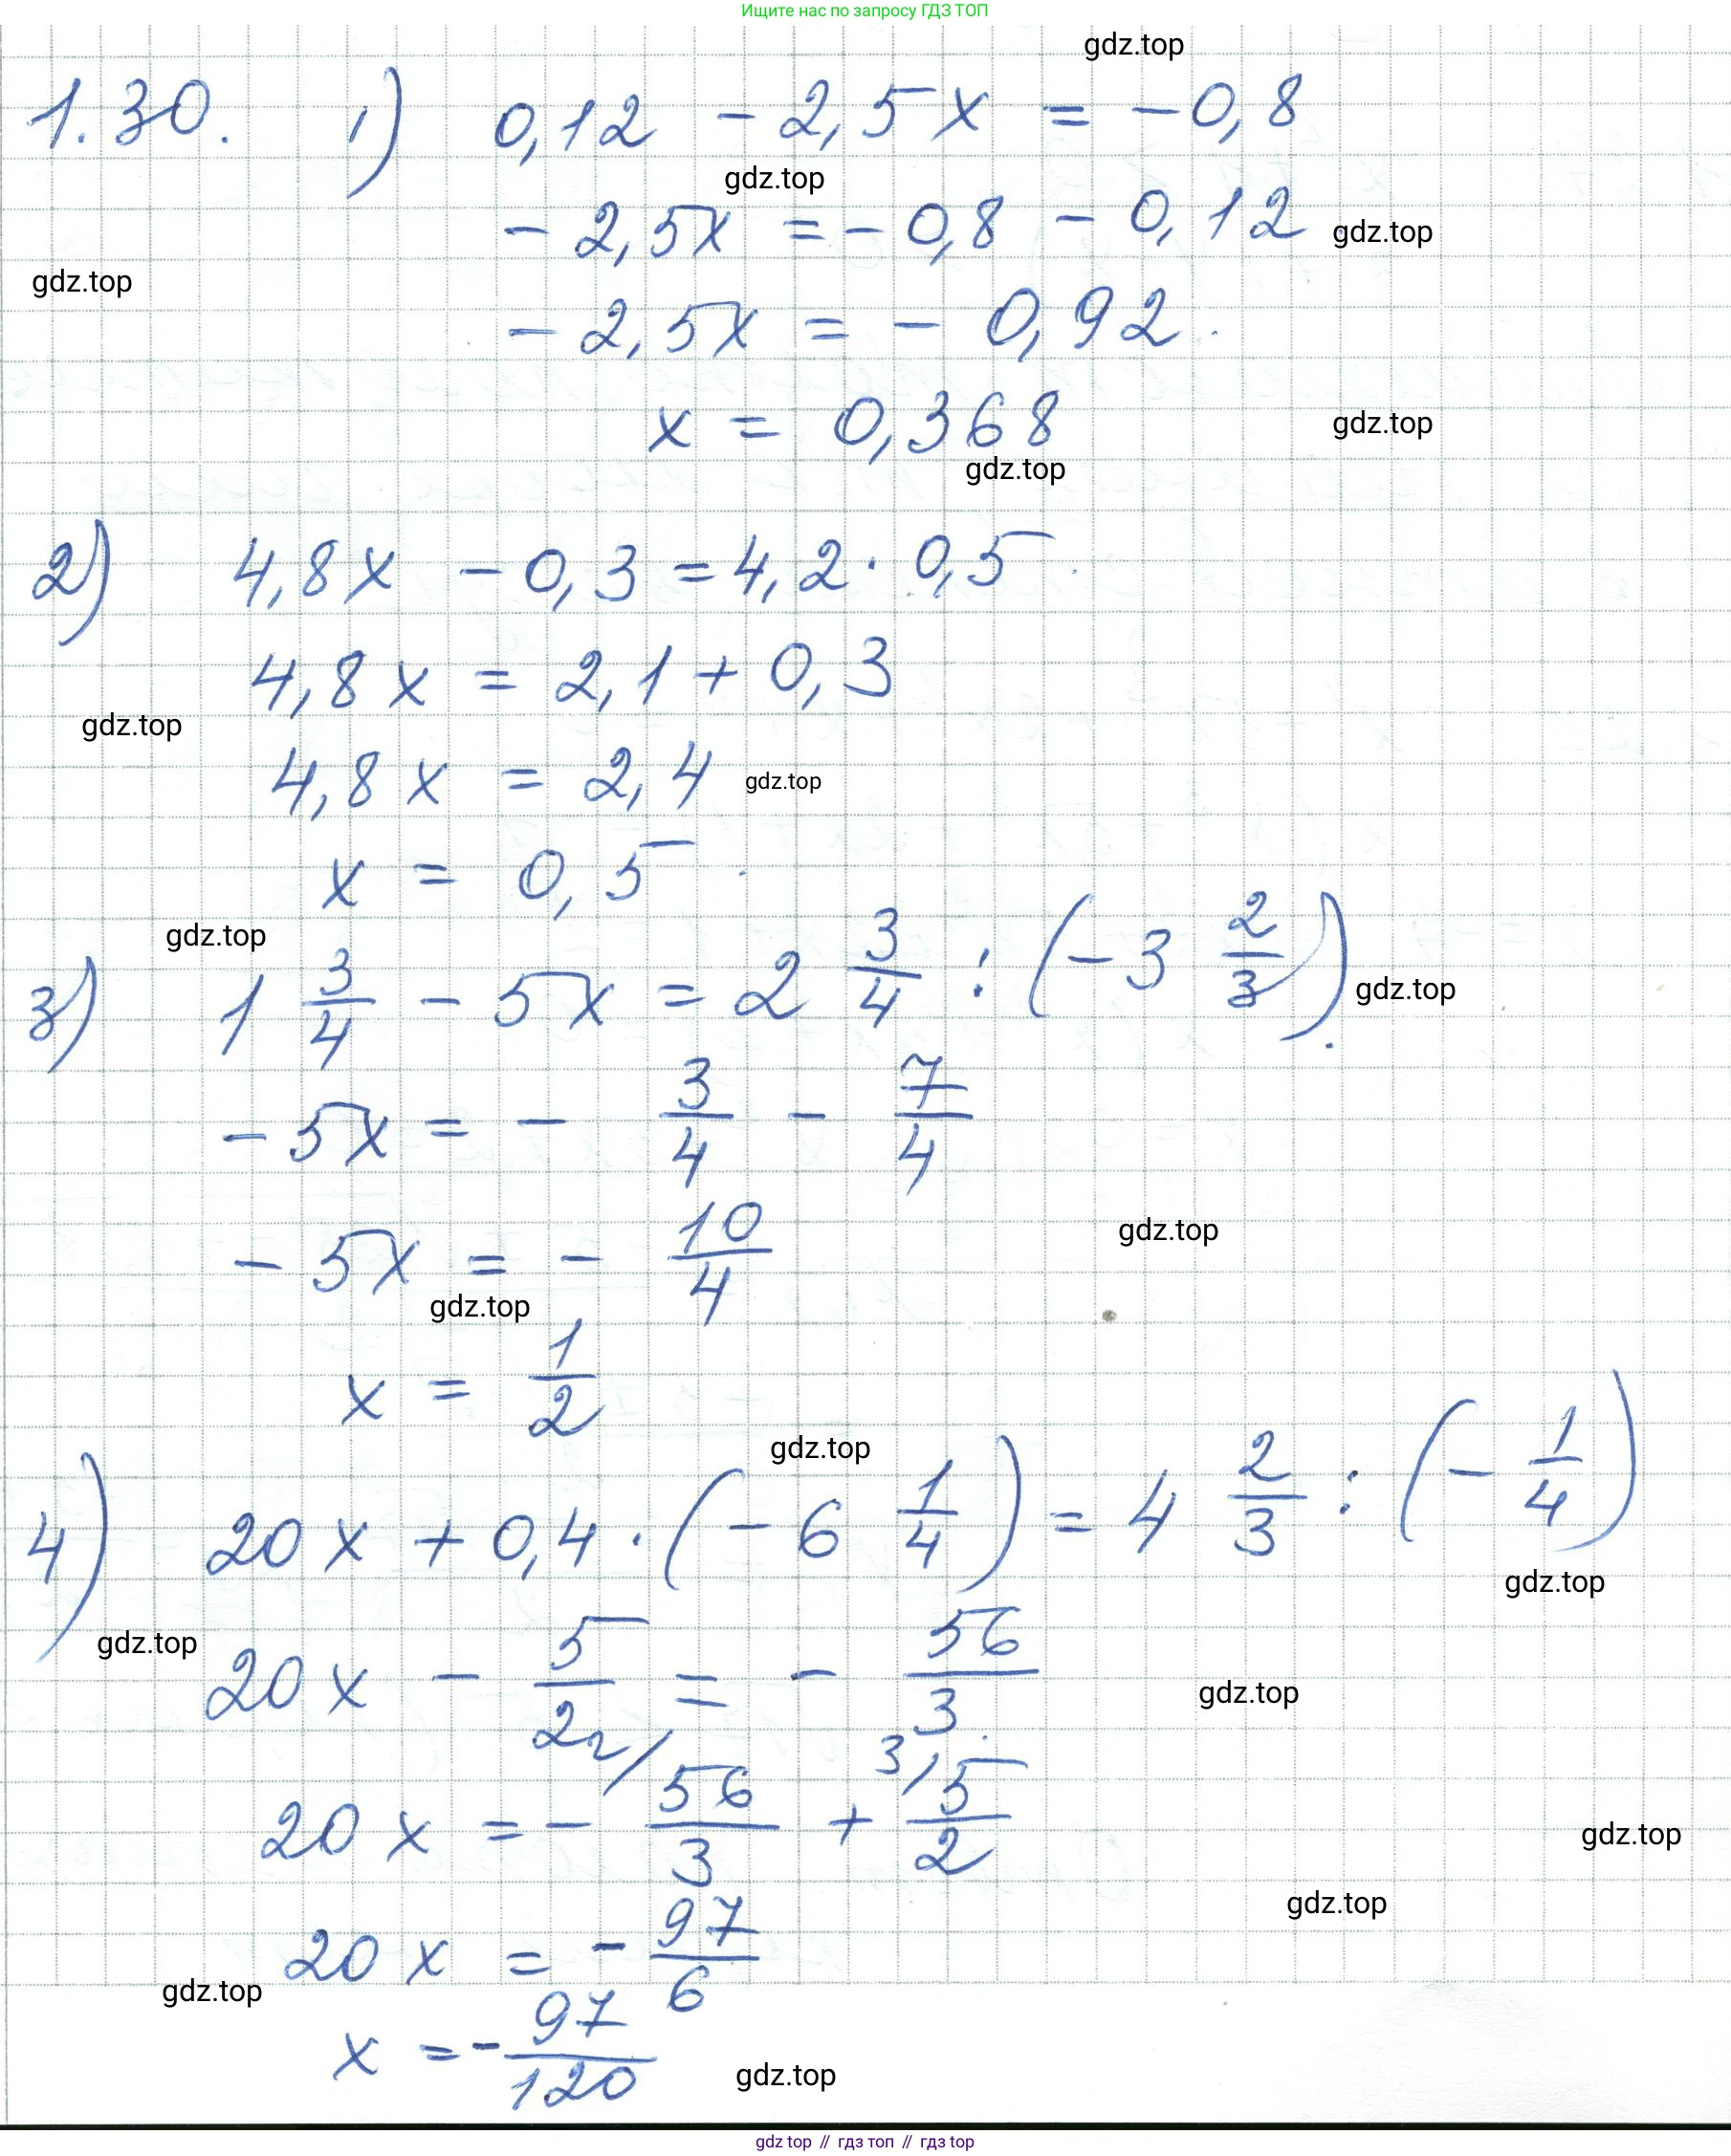 Ищите нас по запросу ГДЗ ТОП
gdz.top
1.30. 1) 0,12 - 2,5x = -0,8
gdz.top
- 2,5x = - 0,8 - 0,12
gdz.top
gdz.top
- 2,5x = - 0,92.
x = 0,368
gdz.top
gdz.top
2) 4,8x - 0,3 = 4,2 · 0,5
4,8x = 2,1 + 0,3
gdz.top
4,8x = 2,4
gdz.top
x = 0,5
gdz.top
3) 1 3/4 - 5x = 2 3/4 : (-3 2/3).
gdz.top
- 5x = - 3/4 - 7/4
- 5x = - 10/4
gdz.top
gdz.top
x = 1/2
gdz.top
4) 20x + 0,4 · (- 6 1/4) = 4 2/3 : (- 1/4)
gdz.top
gdz.top
20x - 5/2 = - 56/3
gdz.top
20x = - 2/ 56/3 + 3/ 5/2
gdz.top
gdz.top
20x = - 97/6
gdz.top
x = - 97/120
gdz.top
gdz top // гдз топ // гдз top